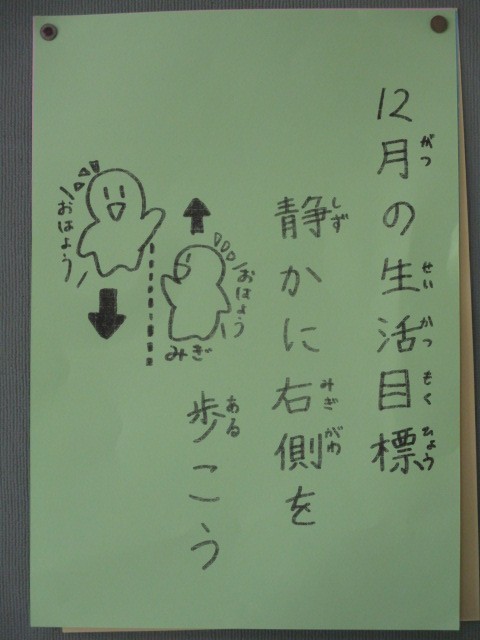 12月の生活目標
がつ
せい
かつ
もく
ひょう
静かに右側を
しず
みぎ
がわ
歩こう
ある
おはよう
みぎ
おはよう